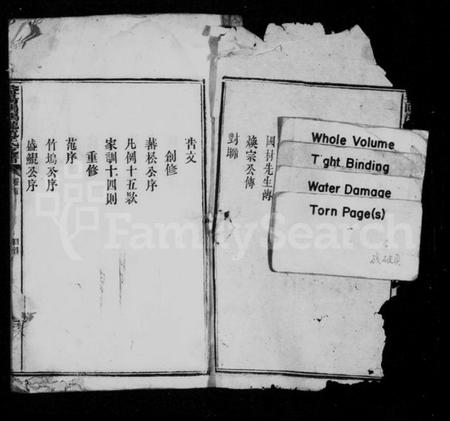 國村先生傳
煥宗公傳
對聯
Whole Volume
Tight Binding
Water Damage
Torn Page(s)
舊文
創修
蕃松公序
凡例十五欵
家訓十四則
重修
范序
竹塢公序
盛鯤公序
FamilySearch